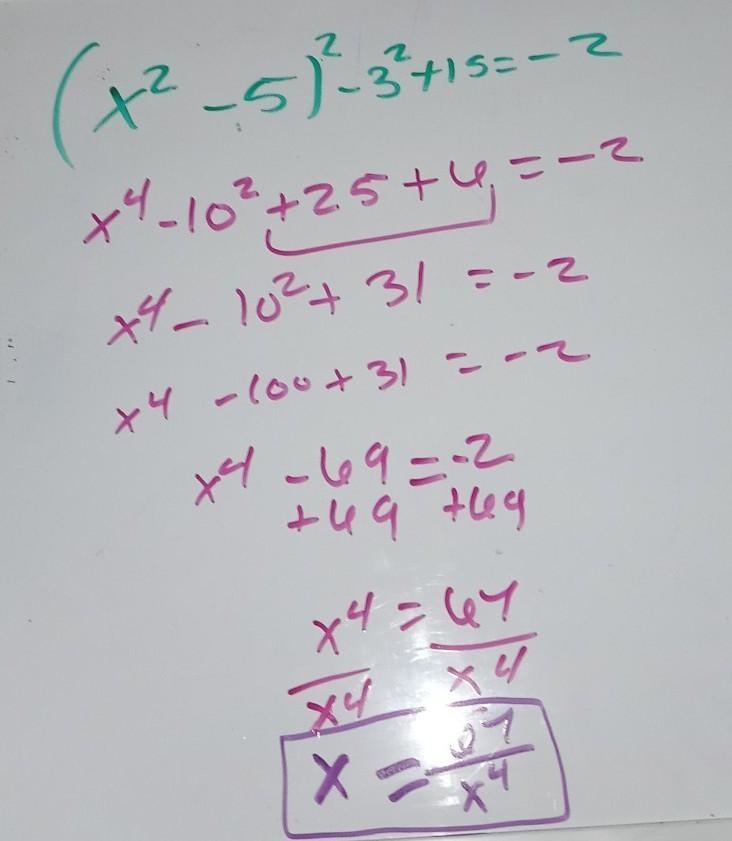 (x² - 5)² - 3² + 15 = -2
x⁴ - 10² + 25 + 6 = -2
x⁴ - 10² + 31 = -2
x⁴ - 100 + 31 = -2
x⁴ - 69 = -2
+69 +69
x⁴ = 67
x⁴ x⁴
x = 67/x⁴